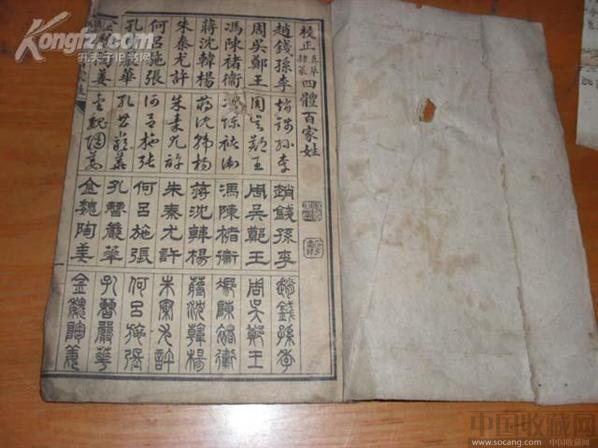 Kongfz.com
孔夫子旧书网
校正真草隸篆四體百家姓
趙錢孫李 趙錢孫李 趙錢孫李 趙錢孫李
周吳鄭王 周吳鄭王 周吳鄭王 周吳鄭王
馮陳褚衞 馮陳褚衞 馮陳褚衞 馮陳褚衞
蔣沈韓楊 蔣沈韓楊 蔣沈韓楊 蔣沈韓楊
朱秦尤許 朱秦尤許 朱秦尤許 朱秦尤許
何呂施張 何呂施張 何呂施張 何呂施張
孔華 孔曹嚴華 孔曹嚴華 孔曹嚴華
姜 金魏陶姜 金魏陶姜 金魏陶姜
中国收藏网
www.socang.com 中国收藏网